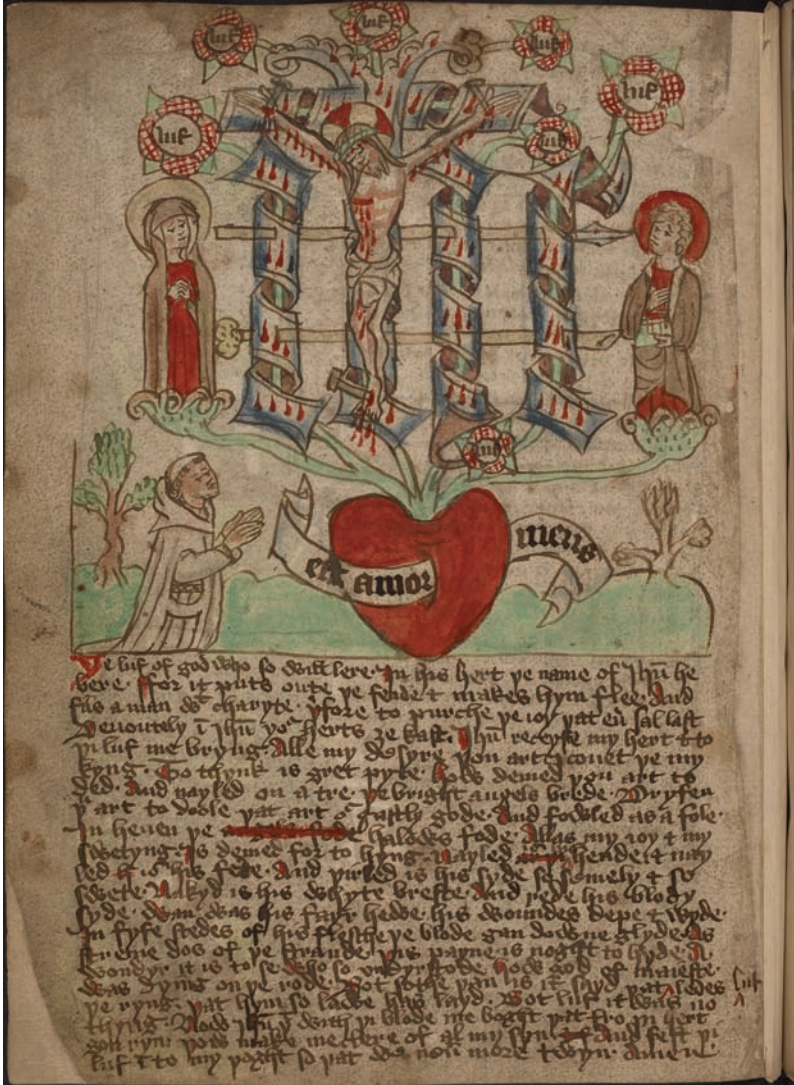 luf
luf
luf
luf
luf
luf
luf
est amor meus
Þe luf of god who so will lere · In his hert þe name of Ihū he
bere · ffor it puts oute þe fende & makes hym flee · And
fils a man wt charyte · Þfore to purches þe ioy þat eū sal last
Deuoutely ī Ihū yor herts ȝe kast · Ihū receyfe my hert & to
þi luf me bryng · Alle my desyre þou art I couet þe my
kyng · To thynk is gret pyte · hows demed þou art to
ded · And nayled on a tre · þe bright angels brede · Dryfen
þu art to doole þat art or gastly gode · And fowled as a fole ·
In heuen þe halows fode · Allas my ioy & my
swetyng · Is demed for to hyng · nayled hende & nay
led is his fete · And þirled is his syde so semely & so
swete · Nakyd is his whyte breste · And rede his blody
syde · wan was his fayr hewe · his woundes depe & wyde ·
In fyfe stedes of his flesche þe blode gan downe glyde · as
streme dos of þe strande · Þis payne is noght to hyde · A
wondyr it is to se · who so vndyrstode · how god of maieste ·
was dyīng on þe rode · Bot sothe þan is it sayd þat luf ledes
þe ryng · þat hym so lawe has layd · Bot luf it was no
thyng · Now Ihū þt with þi blode me boght þat fro þi hert
gon ryn þow make me clere of al my syn · And fest þi
luf ī to my þoght so þat we neū more twyn · Amen